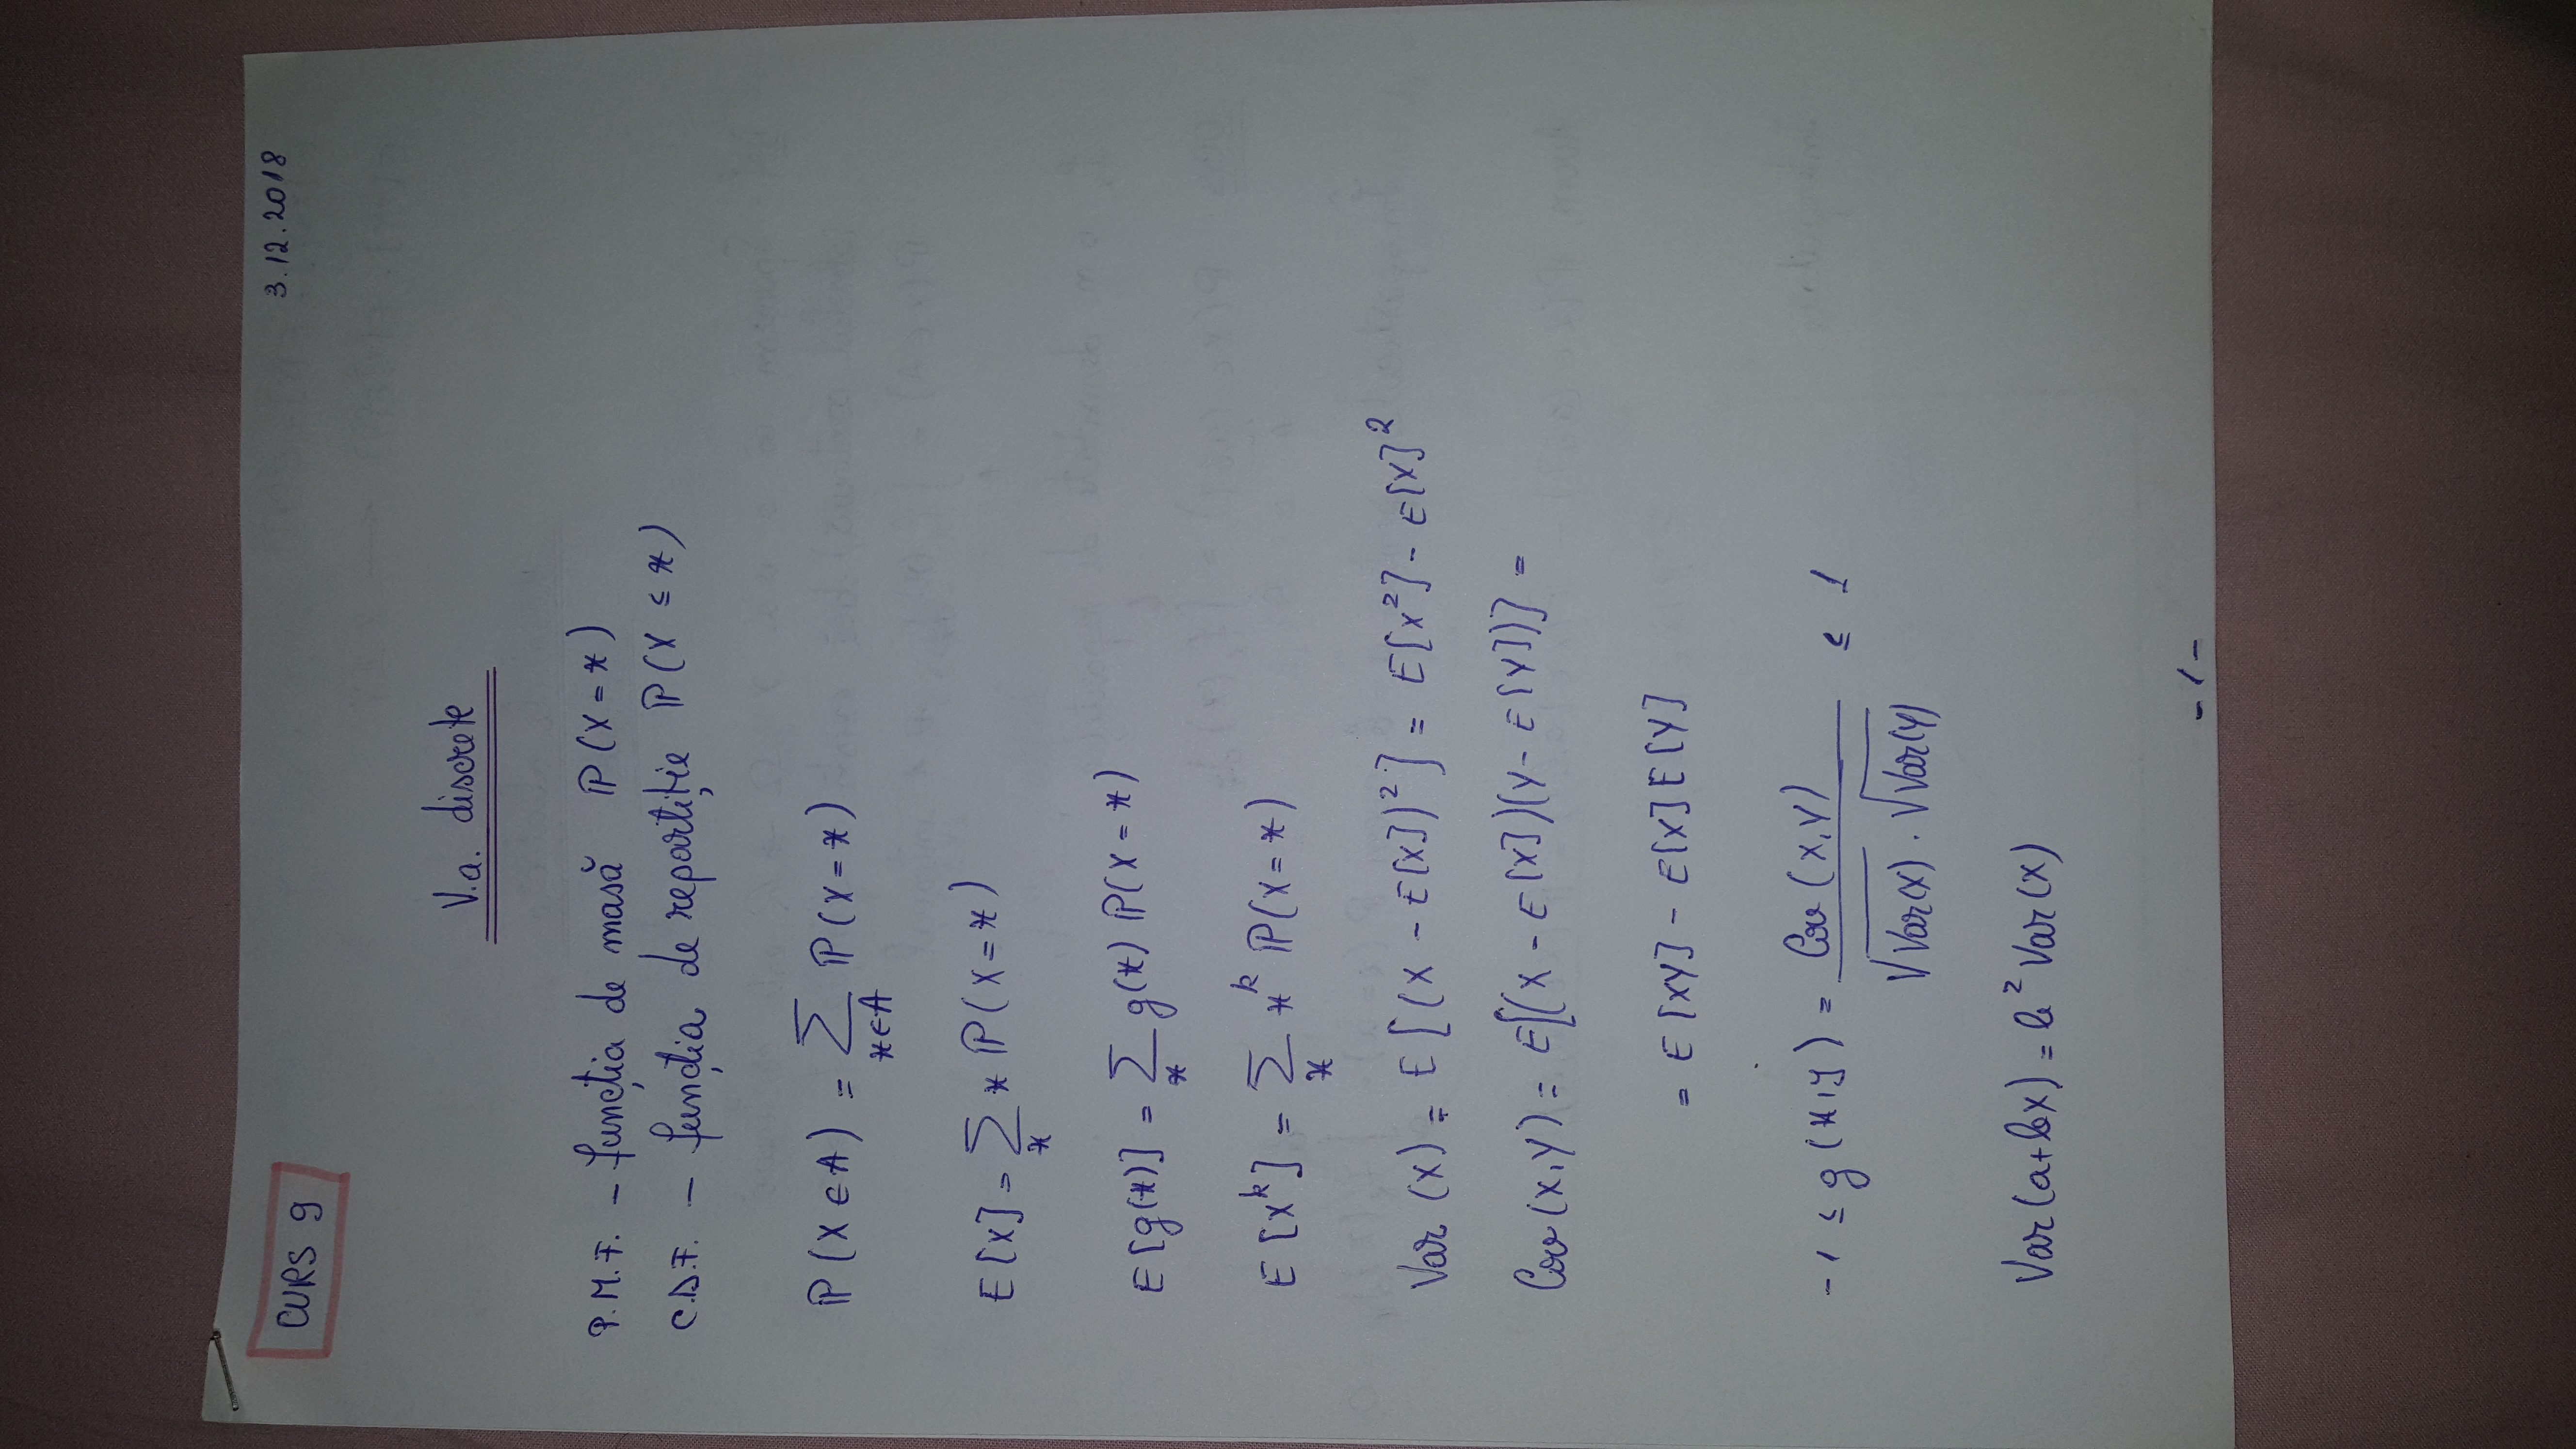 CURS 9
3.12.2018
V.a. discrete
P.M.F. - funcția de masă ℙ(X = x)
C.D.F. - funcția de repartiție ℙ(X ≤ x)
ℙ(X ∈ A) = ∑_{x∈A} ℙ(X = x)
E[X] = ∑_x x ℙ(X = x)
E[g(x)] = ∑_x g(x) ℙ(X = x)
E[X^k] = ∑_x x^k ℙ(X = x)
Var(X) = E[(X - E[X])²] = E[X²] - E[X]²
Cov(X,Y) = E[(X - E[X])(Y - E[Y])] =
= E[XY] - E[X]E[Y]
-1 ≤ g(x,y) = Cov(X,Y) / (√Var(X) · √Var(Y)) ≤ 1
Var(a+bX) = b² Var(X)
- 1 -